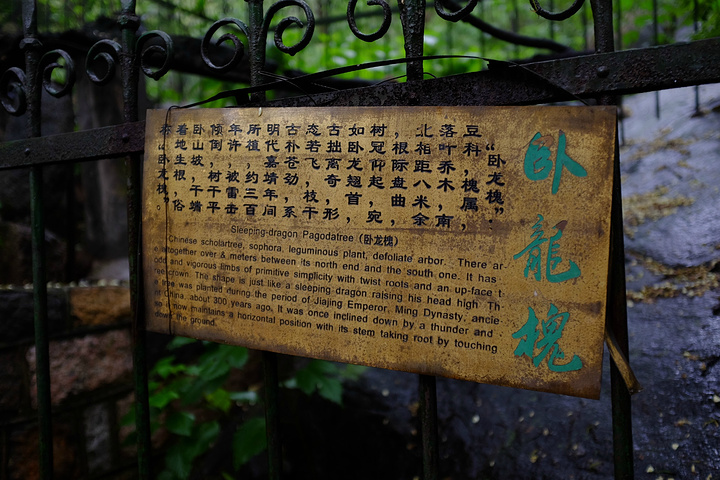 卧龍槐
“卧龙槐”
豆科，槐属，
落叶乔木，南
北相距八米余
，根际盘曲，
树冠仰起，宛
如卧龙翘首，
古拙离奇，形
态若飞，枝干
古朴苍劲，系
明代嘉靖年间
所植，约三百
年许，被雷击
倾倒，树干平
卧山坡，干端
着地生根，俗
有“卧龙槐”
Sleeping-dragon Pagodatree (卧龙槐)
Chinese scholartree, sophora, leguminous plant, defoliate arbor. There ar-
e altogether over 8 meters between its north end and the south one. It has
odd and vigorous limbs of primitive simplicity with twist roots and an up-face t-
ree crown. The shape is just like a sleeping dragon raising his head high Th-
e tree was planted during the period of Jiajing Emperor, Ming Dynasty, ancie-
nt China, about 300 years ago, It was once inclined down by a thunder and
now maintains a horizontal position with its stem taking root by touching
down the ground.